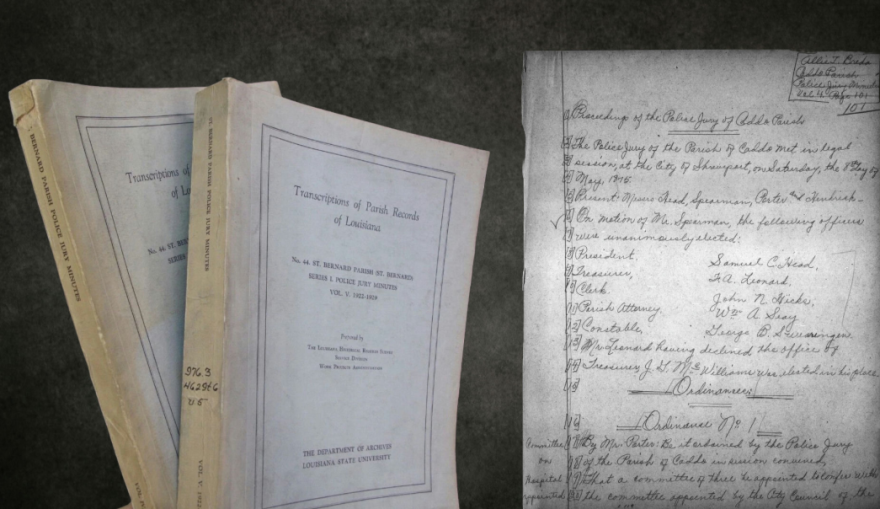 BERNARD PARISH POLICE JURY MINUTES
Transcriptions of
of Lo
No. 44. ST. BERN
SERIES
BERNARD PARISH POLICE JURY MINUTES
976.3
Transcriptions of Parish Records
of Louisiana
No. 44. ST. BERNARD PARISH ST. BERNARD
SERIES I. POLICE JURY MINUTES
VOL. V.
Prepared by
THE LOUISIANA HISTORICAL RECORDS SURVEY
SERVICE DIVISION
WORK PROJECTS ADMINISTRATION
THE DEPARTMENT OF ARCHIVES
LOUISIANA STATE UNIVERSITY
Caddo Parish
Police Jury
Vol. 4. 101
101
Proceedings of the Police Jury of Caddo Parish
The Police Jury of the Parish of Caddo met in legal
session, at the City of Shreveport, on Saturday, the Day of
May, 1875
Present: Messrs Head, Spearman, Porter and
On motion of Mr. Spearman, the following officers
were unanimously elected:
President, Samuel C. Head,
Treasurer, Leonard,
Clerk John N. Hicks,
Parish Attorney Wm A Seay
Constable, George B.
Mr. Leonard having declined the office of
Treasurer J. Williams was elected in his place
Ordinances
Ordinance No 1
Committee By Mr. Porter: Be it ordained by the Police Jury
on of the Parish of Caddo in session convened,
Hospital That a committee of three be appointed to confer with
appointed the committee appointed by the City Council of the